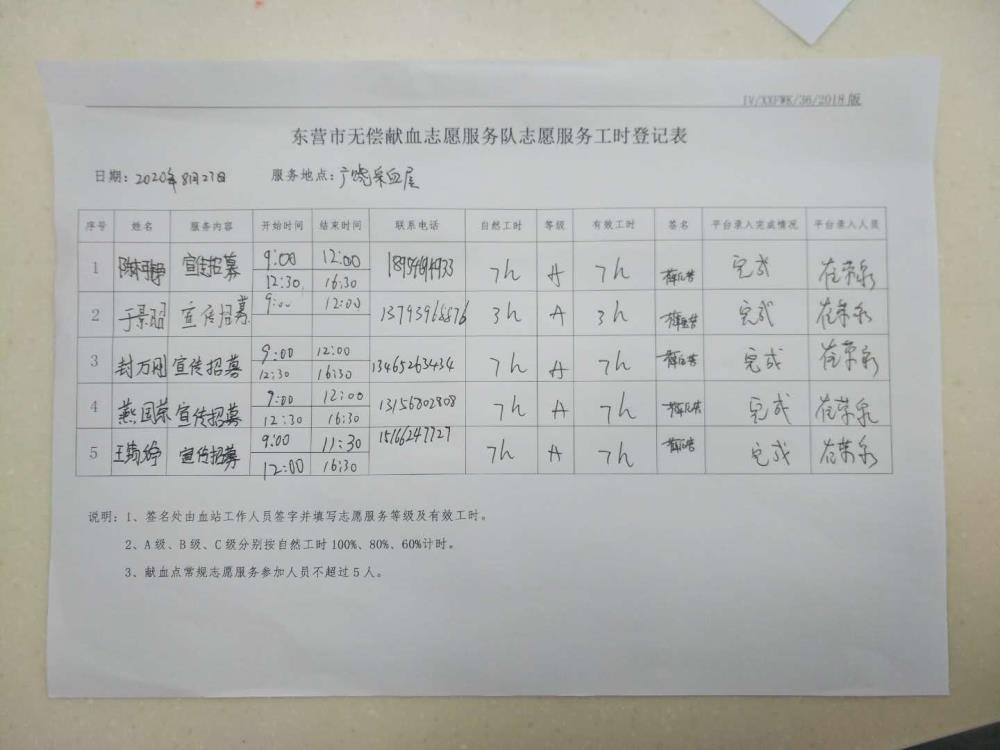 IV/XXFWK/36/2018版
东营市无偿献血志愿服务队志愿服务工时登记表
日期：2020年8月27日 服务地点：广饶采血屋
序号 姓名 服务内容 开始时间 结束时间 联系电话 自然工时 等级 有效工时 签名 平台录入完成情况 平台录入人员
1 宣传招募 9:00 12:00 7h A 7h 完成
12:30 16:30
2 于景昭 宣传招募 9:00 12:00 13793968876 3h A 3h 完成
3 封万刚 宣传招募 9:00 12:00 13465263434 7h A 7h 完成
12:30 16:30
4 燕国荣 宣传招募 9:00 12:00 13156802808 7h A 7h 完成
12:30 16:30
5 宣传招募 9:00 11:30 15166247727 7h A 7h 完成
12:00 16:30
说明：1、签名处由血站工作人员签字并填写志愿服务等级及有效工时。
2、A级、B级、C级分别按自然工时100%、80%、60%计时。
3、献血点常规志愿服务参加人员不超过5人。